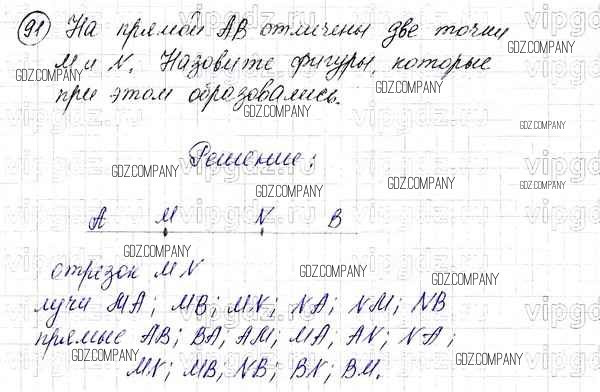 91 На прямой AB отмечены две точки
M и N. Назовите фигуры, которые
при этом образовались.
Решение:
A M N B
отрезок MN
лучи MA; MB; MN; NA; NM; NB
прямые AB; BA, AM; MA, AN; NA;
MN; MB; NB; BN; BM.
GDZ.COMPANY
vipgdz.ru